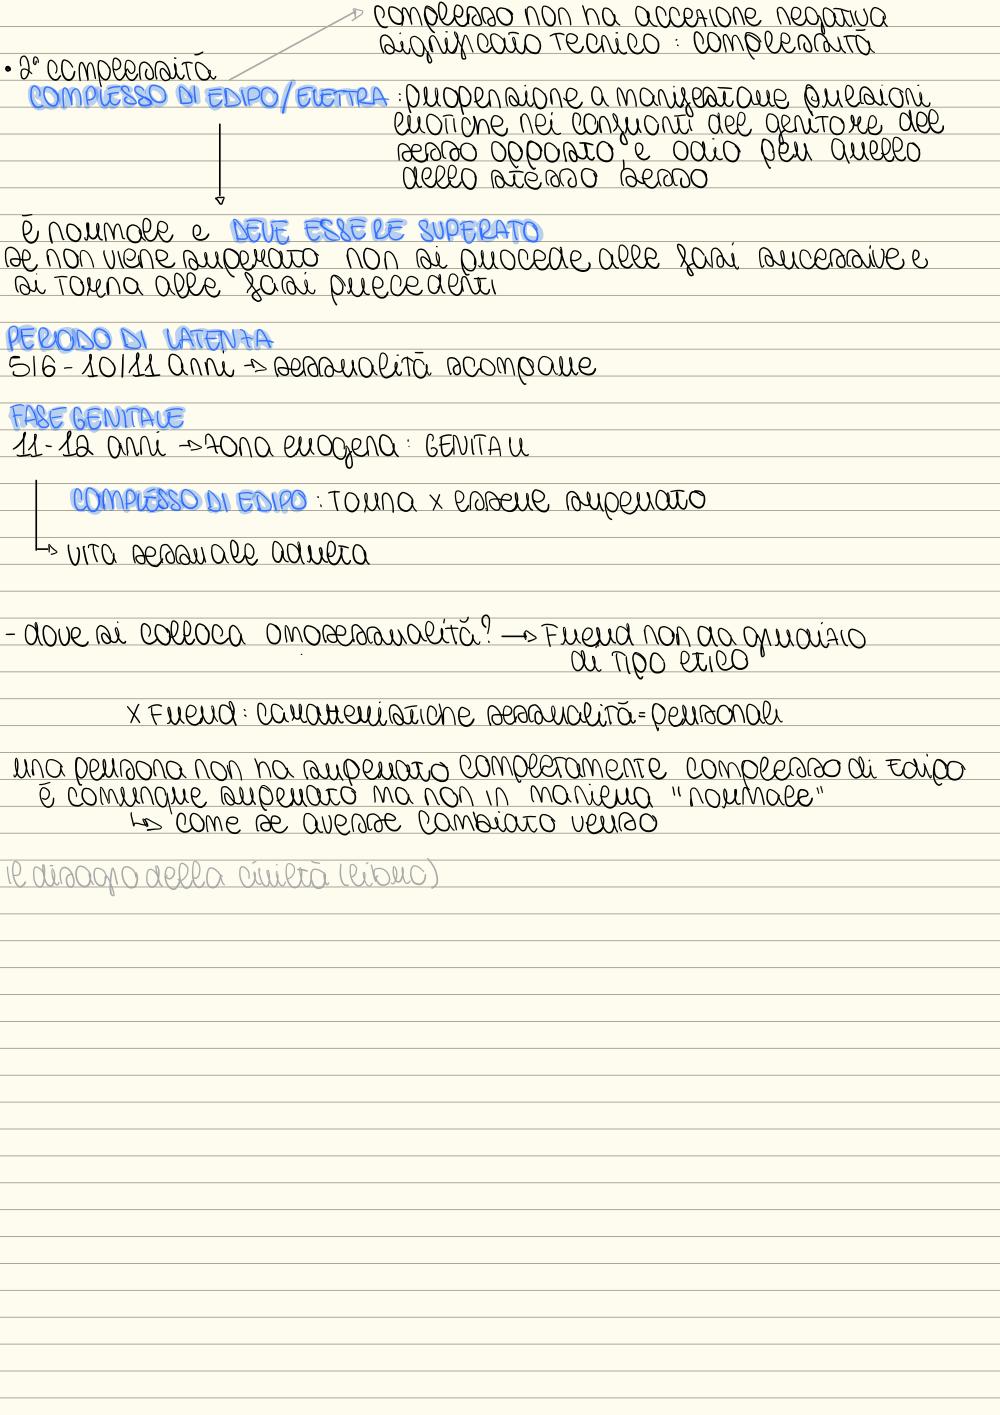 complesso non ha accezione negativa
significato tecnico : complessità
• 2° complessità
COMPLESSO DI EDIPO/ELETTRA : propensione a manifestare pulsioni
erotiche nei confronti del genitore del
sesso opposto e odio per quello
dello stesso sesso
è normale e DEVE ESSERE SUPERATO
se non viene superato non si procede alle fasi successive e
si torna alle fasi precedenti
PERIODO DI LATENZA
5/6 - 10/11 anni → sessualità scompare
FASE GENITALE
11-12 anni → zona erogena : GENITALI
COMPLESSO DI EDIPO : torna x essere superato
vita sessuale adulta
- dove si colloca omosessualità? → Freud non da giudizio
di tipo etico
x Freud : caratteristiche sessualità = personali
una persona non ha superato completamente complesso di Edipo
è comunque superato ma non in maniera "normale"
↳ come se avesse cambiato verso
il disagio della civiltà (libro)